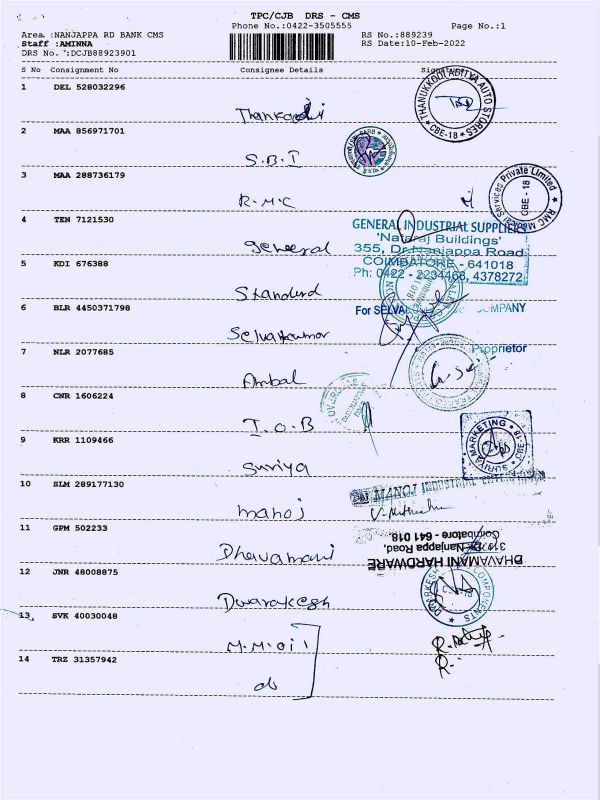 TPC/CJB DRS - CMS
Phone No.:0422-3505555
Page No.:1
Area :NANJAPPA RD BANK CMS
RS No.:889239
Staff :AMINNA
RS Date:10-Feb-2022
DRS No. :DCJB88923901
S No Consignment No Consignee Details Signature
1 DEL 528032296
THANUKKODI ADITYA AUTO STORES
CBE-18
2 MAA 856971701
S.B.I
3 MAA 288736179
R.M.C
RMC Readymix Services Private Limited
CBE - 18
4 TEN 7121530
General
GENERAL INDUSTRIAL SUPPLIERS
'Nataraj Buildings'
355, Dr.Nanjappa Road
COIMBATORE - 641018
Ph: 0422 - 2234468, 4378272
5 KDI 676388
Standard
6 BLR 4450371798
Selvakumar
For SELVA COMPANY
Proprietor
7 NLR 2077685
Ambal
8 CNR 1606224
I.O.B
9 KRR 1109466
Suriya
SURIYA MARKETING
CBE-18
10 SLM 289177130
manoj
MANOJ INDUSTRIAL
11 GPM 502233
Dhavamani
DHAVAMANI HARDWARE
Nanjappa Road,
Coimbatore - 641 018.
12 JNR 48008875
Dwarakesh
DWARKESH COMPONENTS
13 SVK 40030048
M.M.oil
14 TRZ 31357942
do